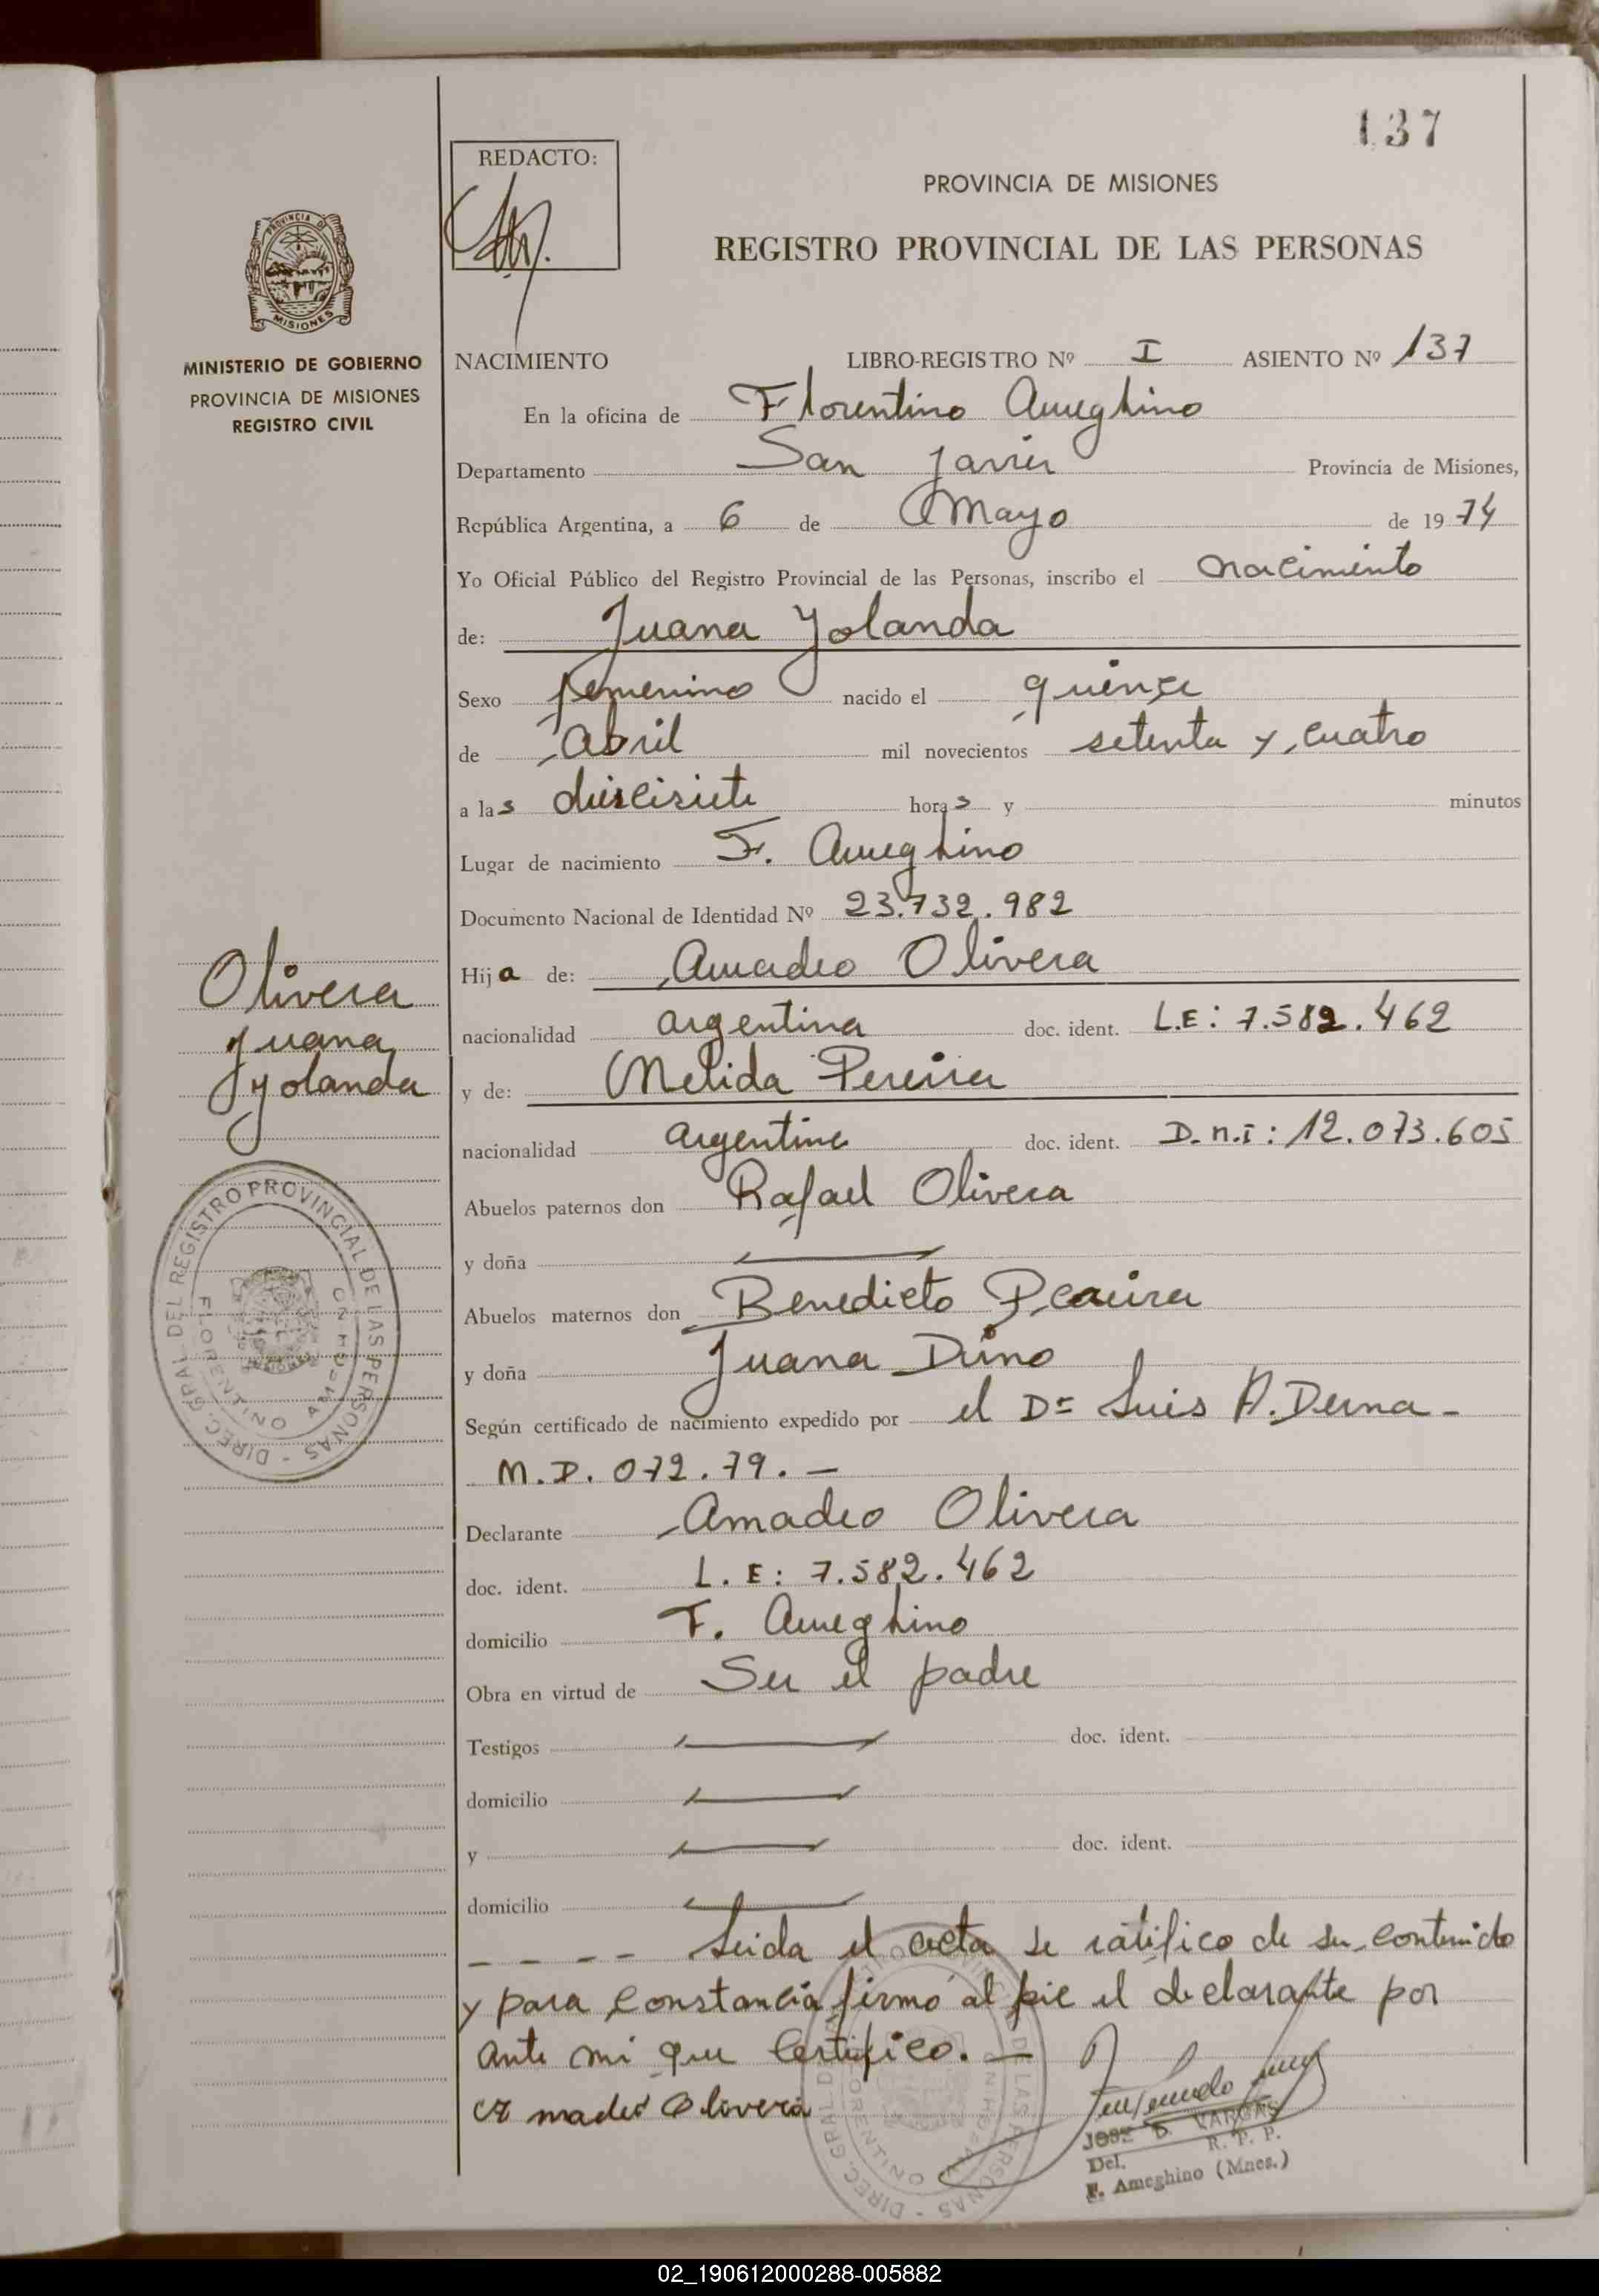 137
REDACTO:
PROVINCIA DE MISIONES
REGISTRO PROVINCIAL DE LAS PERSONAS
PROVINCIA DE
MISIONES
MINISTERIO DE GOBIERNO
PROVINCIA DE MISIONES
REGISTRO CIVIL
NACIMIENTO LIBRO-REGISTRO Nº I ASIENTO Nº 137
En la oficina de Florentino Ameghino
Departamento San Javier Provincia de Misiones,
República Argentina, a 6 de Mayo de 1974
Yo Oficial Público del Registro Provincial de las Personas, inscribo el nacimiento
de: Juana Yolanda
Sexo femenino nacido el quince
de Abril mil novecientos setenta y cuatro
a las diecisiete horas y minutos
Lugar de nacimiento F. Ameghino
Documento Nacional de Identidad Nº 23.732.982
Hija de: Amadeo Olivera
nacionalidad argentina doc. ident. L.E: 7.582.462
y de: Melida Pereira
nacionalidad argentina doc. ident. D.n.i: 12.073.605
Abuelos paternos don Rafael Olivera
y doña
Abuelos maternos don Benedicto Pereira
y doña Juana Duno
Según certificado de nacimiento expedido por el Dr Luis A. Derna -
M.D. 072.79. —
Declarante Amadeo Olivera
doc. ident. L.E: 7.582.462
domicilio F. Ameghino
Obra en virtud de Ser el padre
Testigos doc. ident.
domicilio
y doc. ident.
domicilio
- - - - Leida el acta se ratifico de su contenido
y para constancia firmó al pie el declarante por
ante mi que Certifico. —
amadeo Olivera
JOSE D. VARGAS
Del. R. P. P.
F. Ameghino (Mnes.)
Olivera
Juana
Yolanda
DIREC. GRAL. DEL REGISTRO PROVINCIAL DE LAS PERSONAS -
FLORENTINO AMEGHINO
02_190612000288-005882